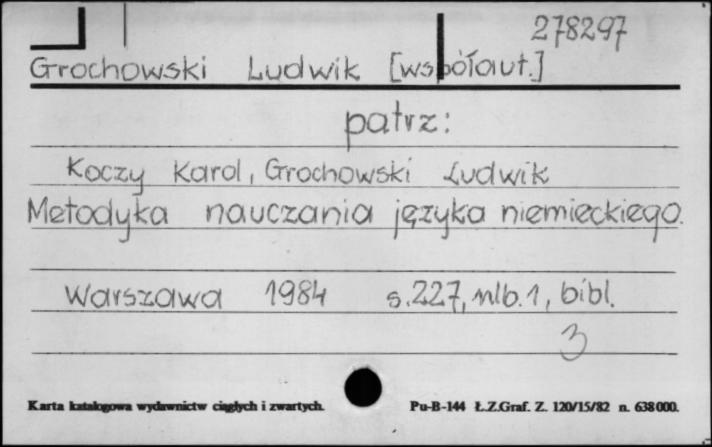 278297
Grochowski Ludwik [współaut.]
patrz:
Koczy Karol, Grochowski Ludwik
Metodyka nauczania języka niemieckiego.
Warszawa 1984 s.227, nlb.1, bibl.
3
Karta katalogowa wydawnictw ciągłych i zwartych. Pu-B-144 Ł.Z.Graf. Z. 120/15/82 n. 638000.